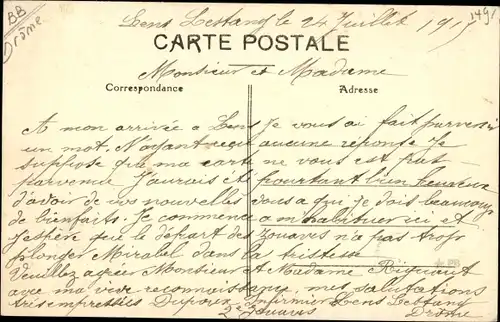 BB
Drôme
1491
Lens Lestang le 24 Juillet 1917
CARTE POSTALE
Monsieur et Madame
Correspondance
Adresse
A mon arrivée a Lens Je vous ai fait parvenir
un mot. N'ayant reçu aucune reponse Je
suppose que ma carte ne vous est pas
parvenue J'aurais été pourtant bien heureux
d'avoir de vos nouvelles vous a qui Je dois beaucoup
de bienfaits. Je commence a m'habituer ici et
J'espère que le depart des Zouaves n'a pas trop
plonger Mirabel dans la tristesse
Veuillez agréer Monsieur et Madame Riquaut
avec ma vive reconnaissance, mes salutations
tres empressées Infirmier Lens Lestang
2e Zouaves Drome